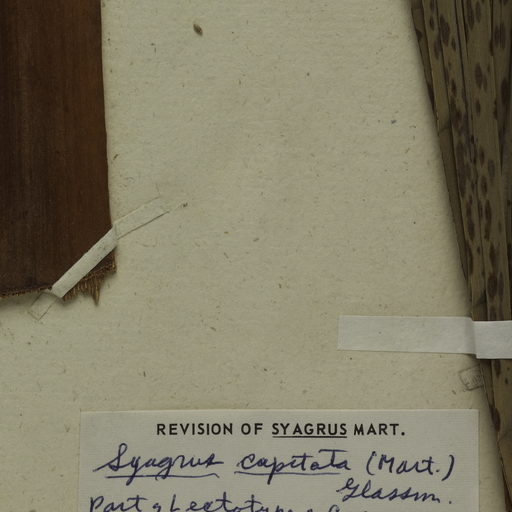 REVISION OF SYAGRUS MART.
Syagrus capitata (Mart.)
Glassm.
Part of Lectotype